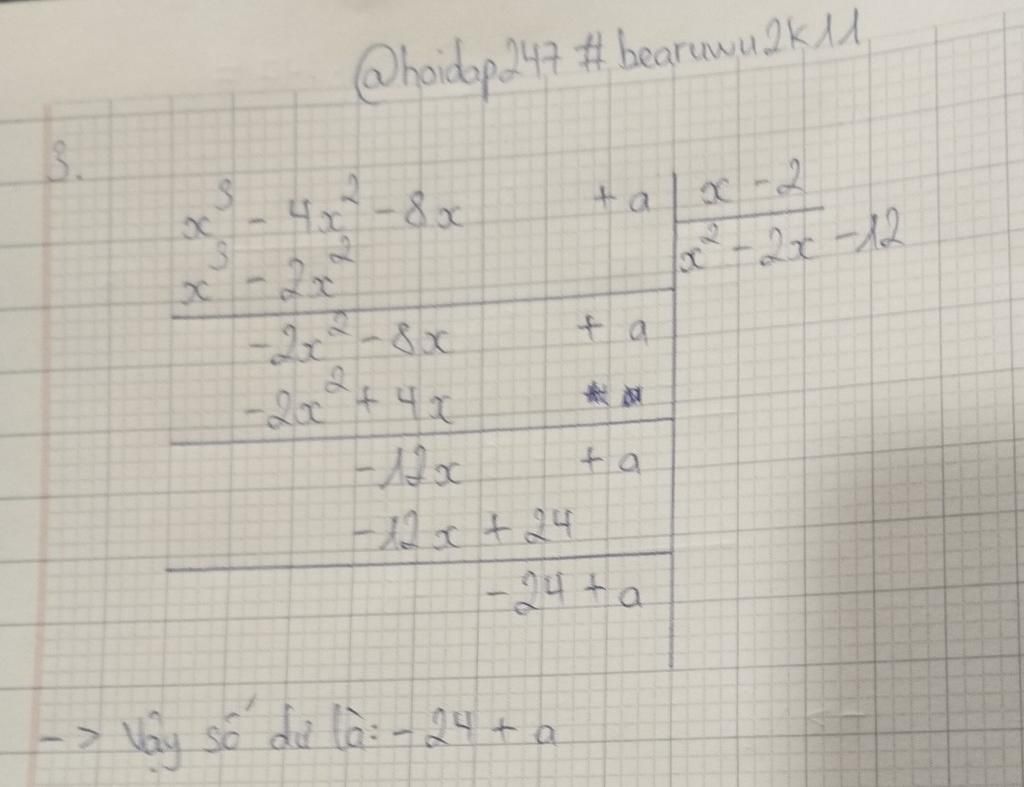 @hoidap247 #bearuwu2k11
3.
x³ - 4x² - 8x + a | x - 2
x³ - 2x² | x² - 2x - 12
-2x² - 8x + a
-2x² + 4x
-12x + a
-12x + 24
-24 + a
-> Vậy số dư là: -24 + a